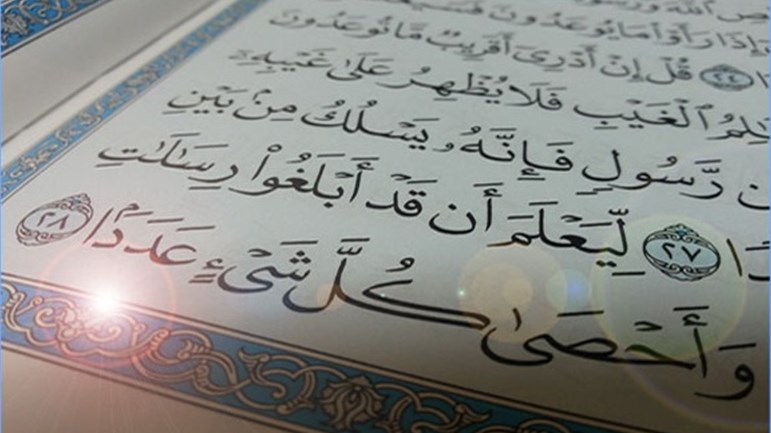 حَتَّىٰٓ إِذَا رَأَوْا۟ مَا يُوعَدُونَ
قُلْ إِنْ أَدْرِىٓ أَقَرِيبٌ مَّا تُوعَدُونَ
عَٰلِمُ ٱلْغَيْبِ فَلَا يُظْهِرُ عَلَىٰ غَيْبِهِۦٓ
مِن رَّسُولٍ فَإِنَّهُۥ يَسْلُكُ مِنۢ بَيْنِ
٢٧ لِّيَعْلَمَ أَن قَدْ أَبْلَغُوا۟ رِسَٰلَٰتِ
وَأَحْصَىٰ كُلَّ شَىْءٍ عَدَدًۢا ٢٨